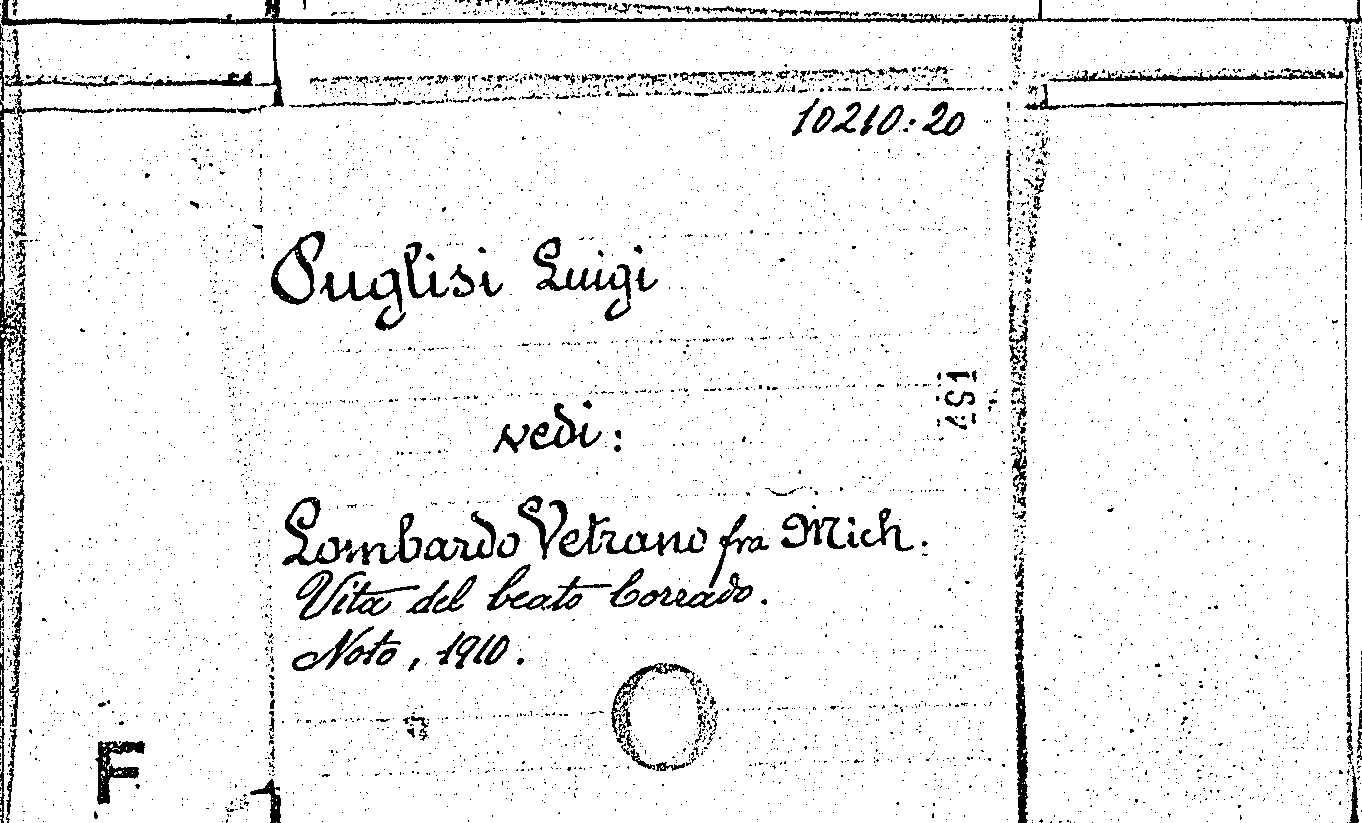 10210:20
Puglisi Luigi
451
vedi:
Lombardo Vetrano fra Mich.
Vita del beato Corrado.
Noto, 1910.
F